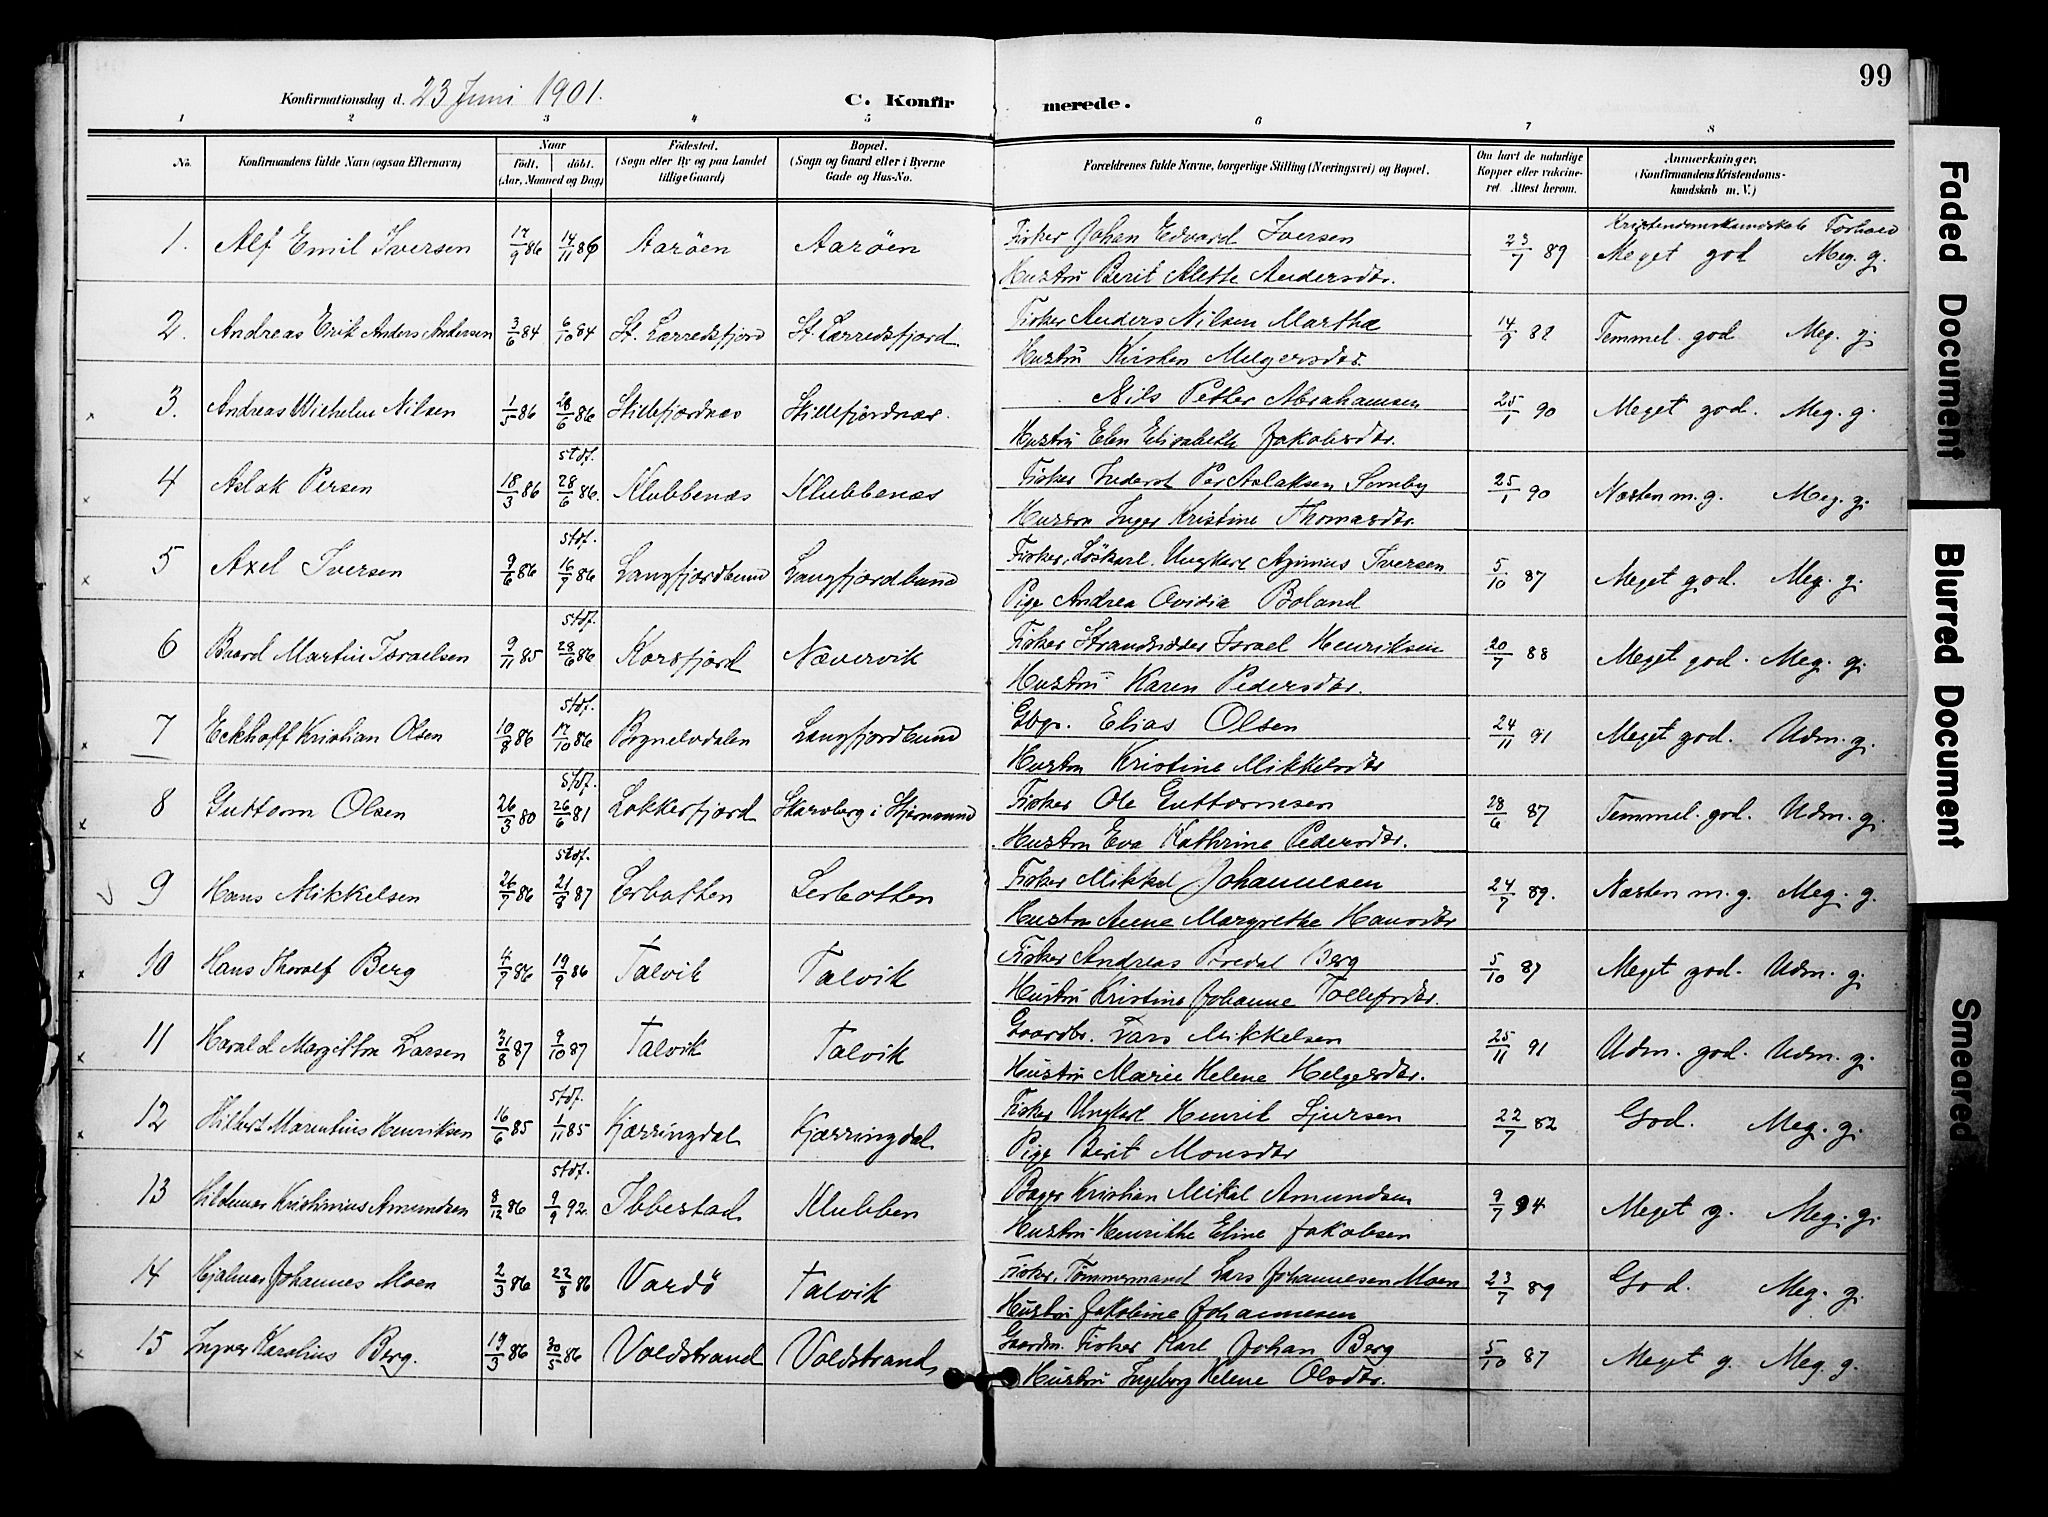 99
Konfirmationsdag d. 23 Juni 1901.
C. Konfirmerede.
1 2 3 4 5 6 7 8
No. Konfirmandens fulde Navn (ogsaa Efternavn) Naar født. døbt. (Aar, Maaned og Dag) Fødested. (Sogn eller By og paa Landet tillige Gaard) Bopæl. (Sogn og Gaard eller i Byerne Gade og Hus-No. Forældrenes fulde Navne, borgerlige Stilling (Næringsvei) og Bopæl. Om havt de naturlige Kopper eller vakcineret. Attest herom. Anmærkninger. (Konfirmandens Kristendomskundskab m. V.)
Kristendomskundskab Forhold
1. Alf Emil Iversen 17/9 86 14/11 86 Aarøen Aarøen Fisker Johan Edvard Iversen 23/7 89 Meget god Meg. g.
Hustru Berit Alette Andersdtr.
2. Andreas Erik Anders Andersen 3/6 84 6/10 84 St. Lærredsfjord St. Lærredsfjord. Fisker Anders Nilsen Martha 14/9 88 Temmel. god Meg. g.
Hustru Kirsten Melgersdtr.
3. Andreas Wilhelm Nilsen 1/5 86 28/6 86 Stillefjordnæs Stillefjordnæs. Nils Petter Abrahamsen 25/1 90 Meget god. Meg. g.
Hustru Elen Elisabeth Jakobsdtr.
stdf.
4 Aslak Persen 18/3 86 28/6 86. Klubbenæs Klubbenæs Fisker Inderst Per Aslaksen Somby 25/1 90 Næsten m. g. Meg. g.
Hustru Inger Kristine Thomasdtr.
stdf.
5 Axel Iversen 9/6 86 16/7 86 Langfjordbund Langfjordbund Fisker, Løskarl. Ungkarl Aginius Iversen 5/10 87 Meget god. Meg. g.
Pige Andrea Ovidia Boland
stdf.
6 Baard Martin Israelsen 9/11 85 28/6 86 Korsfjord Nævervik Fisker Strandsidder Israel Henriksen 20/7 88 Meget god. Meg. g.
Hustru Karen Pedersdtr.
stdf.
7 Eckhoff Kristian Olsen 10/8 86 17/10 86 Bognelvdalen Langfjordbund Gbgr. Elias Olsen 24/11 91 Meget god. Udm. g.
Hustru Kristine Mikkelsdtr
stdf.
8 Guttorm Olsen 26/3 80 26/6 81 Lokkerfjord Skarvberg i Stjernsund Fisker Ole Guttormsen 28/6 87 Temmel. god. Udm. g.
Hustru Eva Kathrine Pedersdtr.
stdf.
9 Hans Mikkelsen 26/7 86 21/8 87 Lerbotten Lerbotten Fisker Mikkel Johannesen 24/7 89. Næsten m. g. Meg. g.
Hustru Anne Margrethe Hansdtr
10 Hans Thoralf Berg 4/7 86 19/9 86 Talvik Talvik Fisker Andreas Bredal Berg 5/10 87 Meget god. Udm. g.
Hustru Kristine Johanne Tollefsdtr.
11 Harald Margitton Larsen 31/8 87 9/10 87 Talvik Talvik Gaardbr. Lars Mikkelsen 25/11 91 Udm. god. Udm. g.
Hustru Marie Helene Helgesdtr.
stdf.
12 Hilbert Marentius Henriksen 16/6 85 1/11 85 Kjærringdal Kjærringdal Fisker Ungkarl Henrik Sjursen 22/7 82 God. Meg. g.
Pige Berit Monsdtr
stdf.
13 Hildemar Kristinius Amundsen 8/12 86 9/9 92. Ibbestad Klubben Bager Kristian Mikal Amundsen 9/7 94 Meget g. Meg. g.
Hustru Henrikke Eline Jakobsen
14 Hjalmar Johannes Moen 2/3 86 22/8 86 Vardö Talvik Fisker, Tømmermand Lars Johannesen Moen 23/7 89 God. Meg. g.
Hustru Jakobine Johannesen
15 Ingvar Karolius Berg. 19/3 86 30/5 86 Voldstrand Voldstrand Gaardm. Fisker Karl Johan Berg 5/10 87 Meget g. Meg. g.
Hustru Ingeborg Helene Olsdtr.
Faded Document
Blurred Document
Smeared